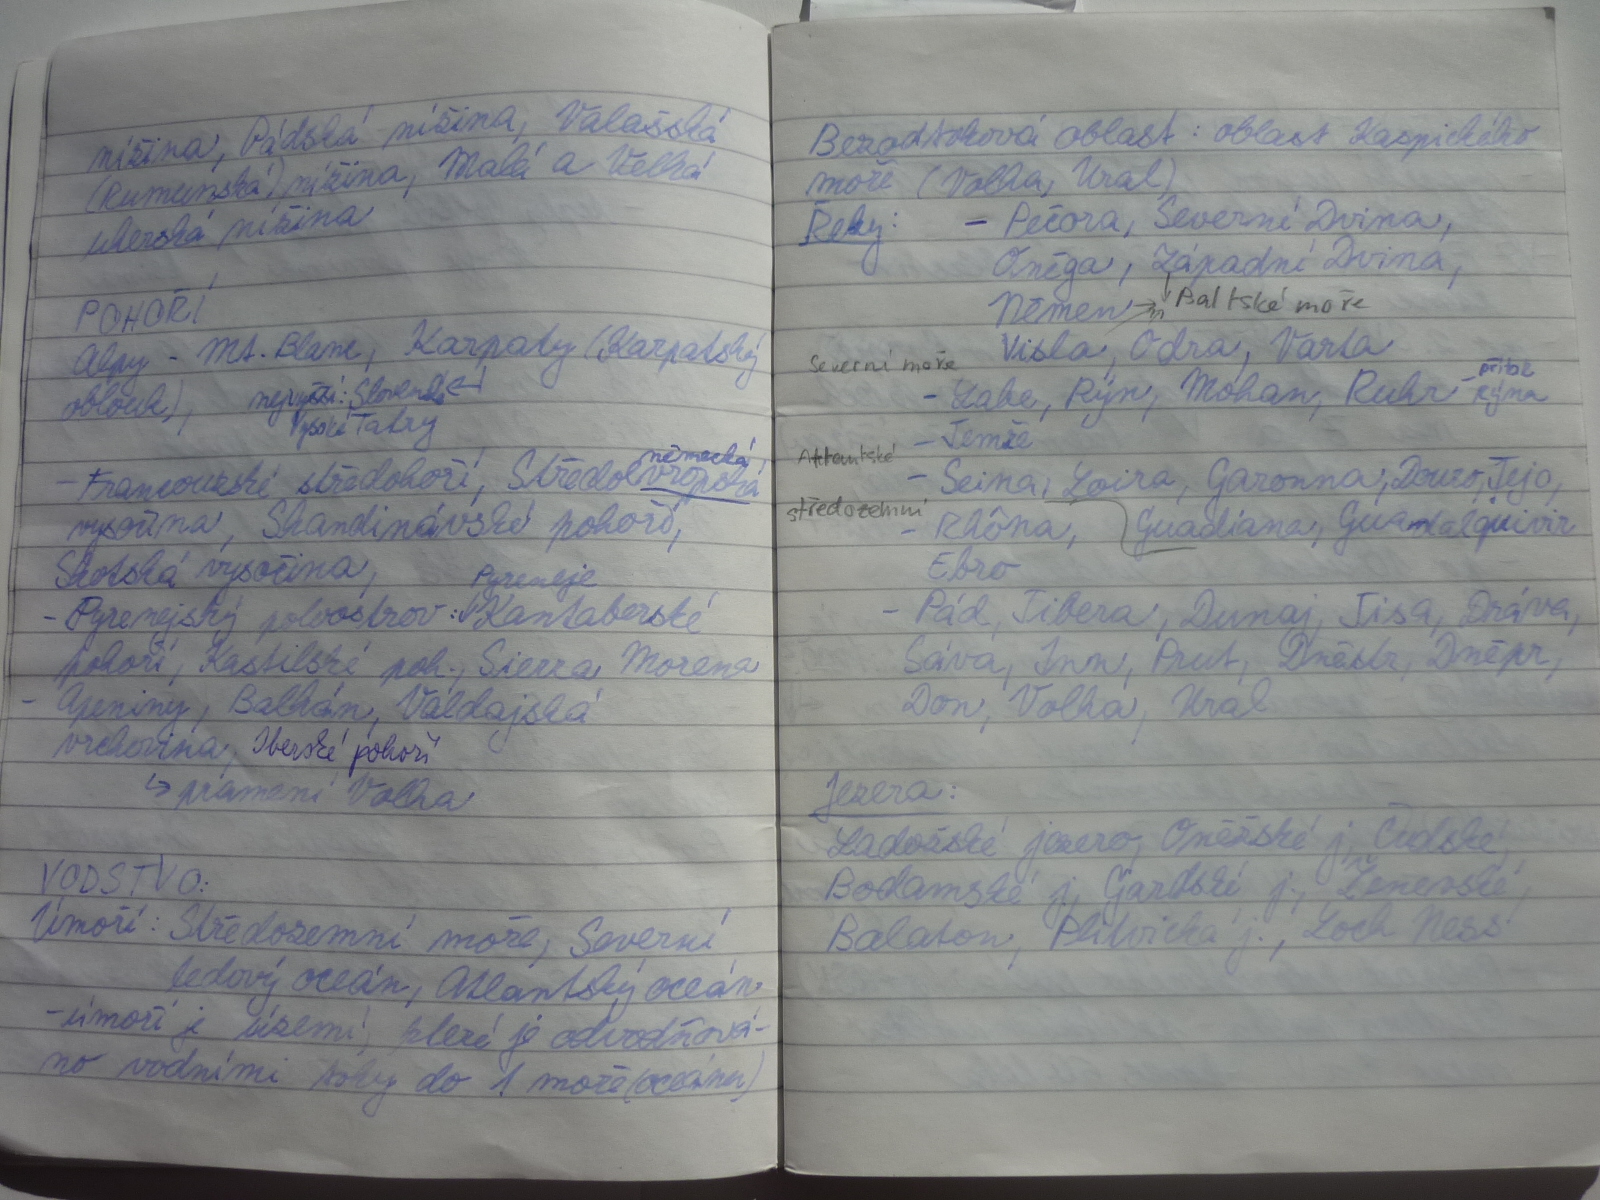 nížina, Pádská nížina, Valašská
(Rumunská) nížina, Malá a Velká
uherská nížina
POHOŘÍ
Alpy - Mt. Blanc, Karpaty (Karpatský
oblouk), nejvyšší: Slovensko
Vysoké Tatry
německá
- Francouzské středohoří, Středoevropská
vysočina, Skandinávské pohoří,
Skotská vysočina,
Pyreneje
- Pyrenejský poloostrov: Kantaberské
pohoří, Kastilské poh., Sierra Morena
- Apeniny, Balkán, Valdajská
vrchovina, Iberské pohoří
↳ pramení Volha
VODSTVO:
Úmoří: Středozemní moře, Severní
ledový oceán, Atlantský oceán
- úmoří je území, které je odvodňová-
no vodními toky do 1 moře (oceánu)
Bezodtoková oblast: oblast Kaspického
moře (Volha, Ural)
Řeky: - Pečora, Severní Dvina,
Oněga, Západní Dvina,
Němen → Baltské moře
Visla, Odra, Varta
Severní moře
- Labe, Rýn, Mohan, Ruhr - přítok Rýna
- Temže
Atlantské
- Seina, Loira, Garonna, Douro, Tejo,
středozemní
- Rhôna, Guadiana, Guadalquivir
Ebro
- Pád, Tibera, Dunaj, Tisa, Dráva,
Sáva, Inn, Prut, Dněstr, Dněpr,
Don, Volha, Ural
Jezera:
Ladožské jezero, Oněžské j., Čudské,
Bodamské j., Gardské j., Ženevské,
Balaton, Plitvická j., Loch Ness